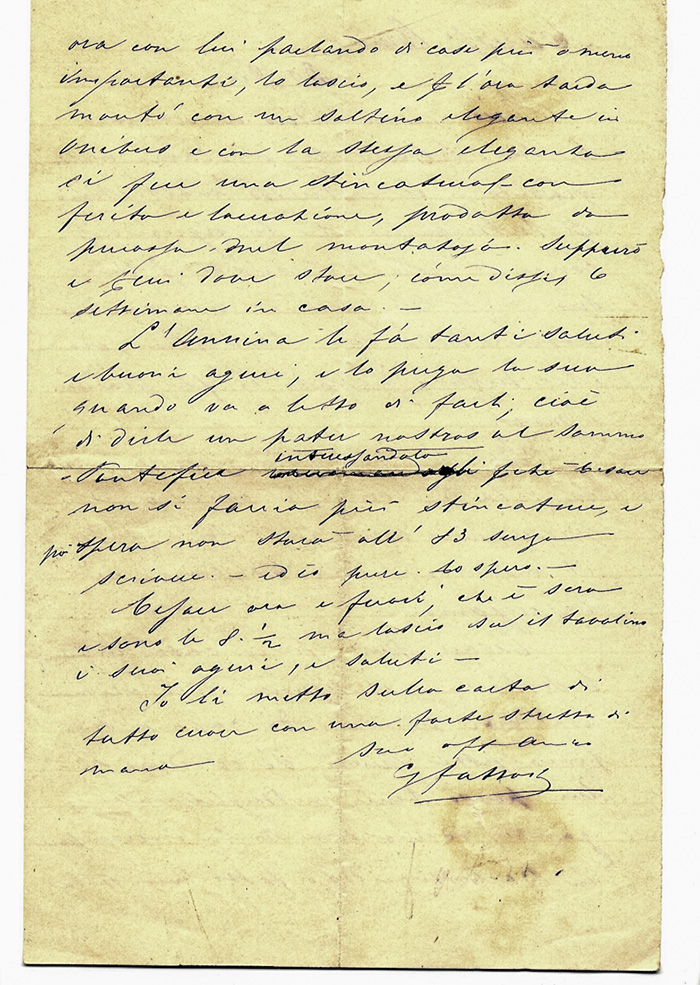 ora con lui parlando di cose più o meno
importanti, lo lascio, e p l'ora tarda
montò con un saltino elegante in
onibus e con la stessa eleganza
si fece una stincatura con
ferita e lacerazione, prodotta da
nel montatojo.
e dové stare, come dissi, 6
settimane in casa. —
L'Annina le fà tanti saluti
e buoni aguri, e lo prega la sera
quando va a letto di farli, cioè
di dirle un pater nostros al sommo
Pontefice interessandolo pchè Cesare
non si faccia più stincature, e
poi spera non starà all' 83 senza
scrivere. — ed io pure lo spero. —
Cesare ora e fuori, che è sera
e sono le 8. ½ ma lascio su il tavolino
i suoi aguri, e saluti —
Io li metto sulla carta di
tutto cuore con una forte stretta di
mano
suo aff Amico